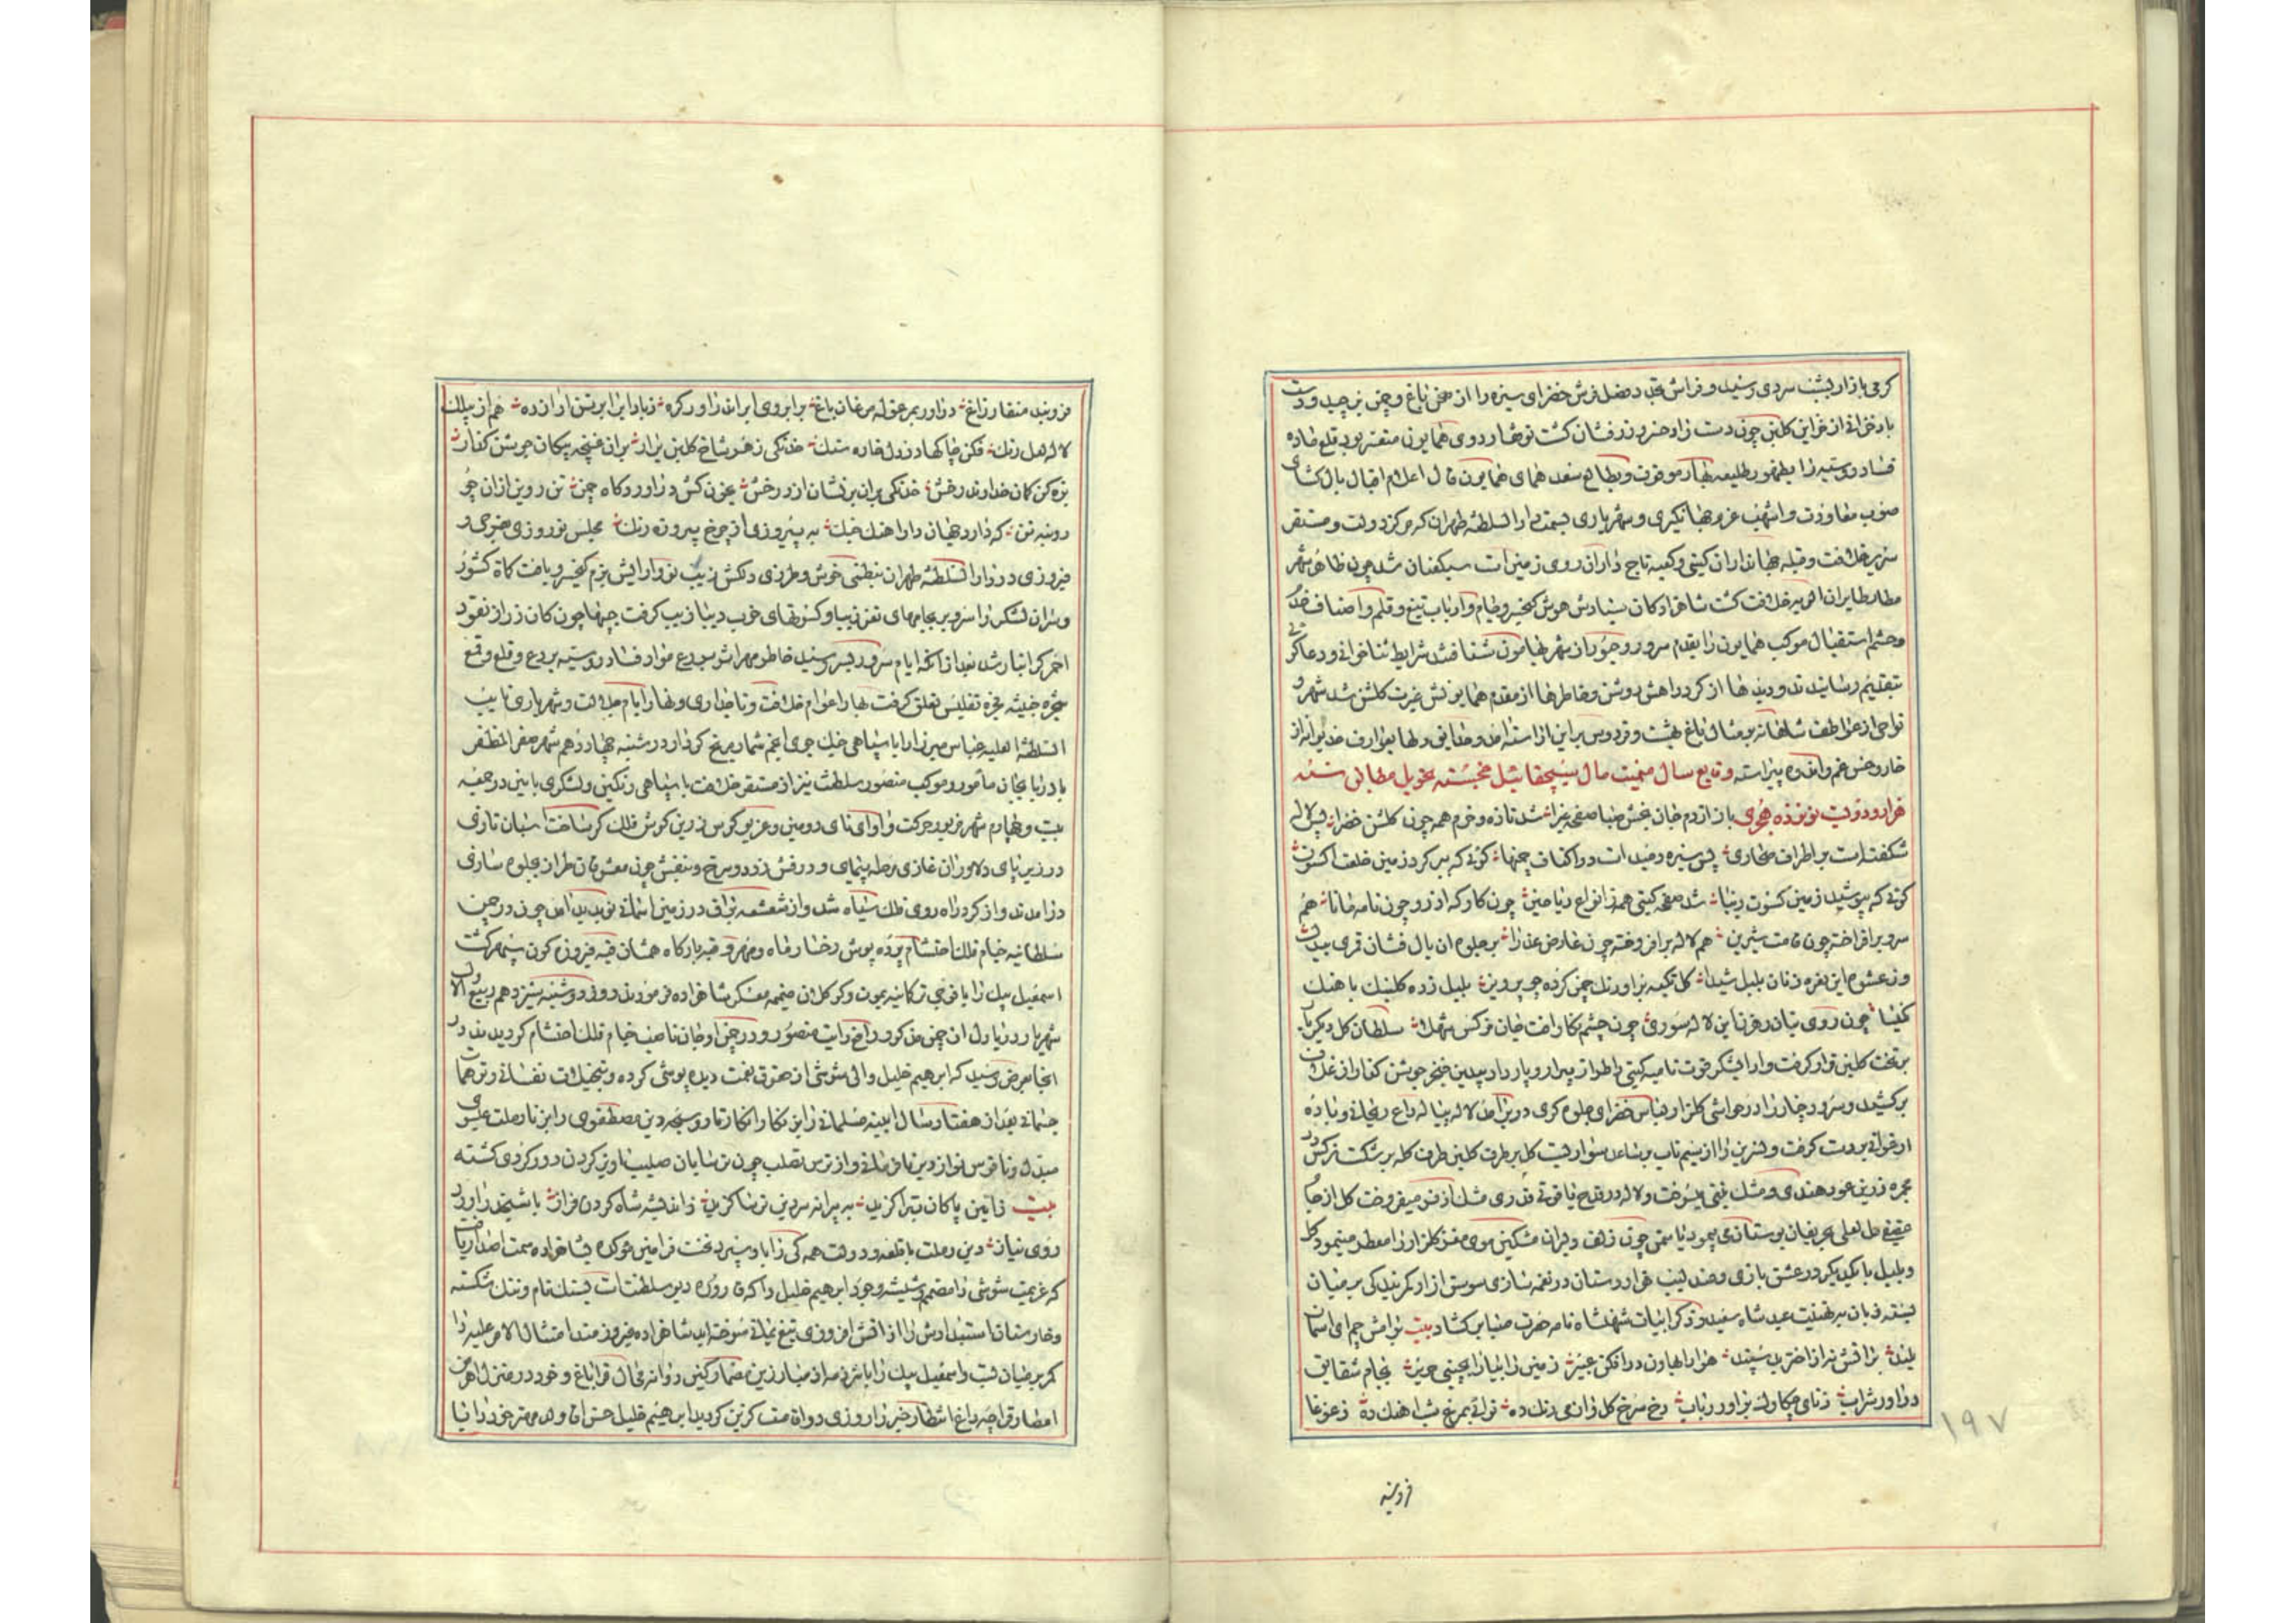 کرمی بازار بشب سردی رسید و فراش فضل فرش خضرای سبزه را از صحن باغ و چمن برچید و دست
باد خزانی از خزاین کلبن چون دست زاد خسرو زرفشان کشت نوشهار دوی همایون متعذر بود قلع ماده
فساد روسیه را بظهور طلیعه بهار موقوف و بطالع سعد همای همایون فال اعلام اقبال بال کشای
صوب معاودت و اشهب عزم جهانکیری و شهریاری بسمت دارالسلطنه طهران که مرکز دولت و مستقر
سریر خلافت و قبله جهانداران کیتی و کعبه تاجداران روی زمین است سبکعنان شد چون ظاهر شهر
خلافت کشت شاهزادکان هوش کیخسرو خیام و ارباب تیغ و قلم و اصناف خدم
و حشم استقبال موکب همایون را بقدم سرور و حبور از شهر بهامون شتافتند شرایط ثناخوانی و دعا کوئی
بتقدیم رسانیدند و دیدها از کرد راهش روشن و خاطرها از مقدم همایونش غیرت کلشن شد شهر و
نواحی از عواطف شاهانه بر مثال باغ بهشت و فردوس برین اراسته امد و دلها بعوارف خدیوانه از
خار و خس غم و اندوه پیراسته وقایع سال میمنت مال سیچقانئیل خجسته تحویل مطابق سنه
هزار و دویست و نوزده هجری باز از دم جان بخش صبا صفحه غبرا شد تازه و خرم همه چون کلشن خضرا بس لاله
شکفته است بر اطراف صحاری بس سبزه دمیده است در اکناف چمنها کوئی که ببر کرد زمین خلعت اکسون
کوئی که بپوشید زمین کسوت دیبا شد صفحه کیتی همه ز انواع ریاحین چون کارکه ازر و چون نامه مانا هم
سرو برافراخته چون قامت شیرین هم لاله برافروخته چون عارض عذرا بر جلوه ان بال فشان قمری بیدل
وز عشوه این نعره زنان بلبل شیدا کل تکیه بر اورنک چمن کرده چو پرویز بلبل زده کلبنک باهنک
نکیسا چون روی بتان دلفریب این لاله سوری چون چشم نکار افت جان نرکس شهلا سلطان کل دیکر بار
بر تخت کلبن قرار کرفت و از لشکر قوت نامیه کیتی را طراز بهار و پار داد بیدبن خنجر جوشن کذار از غلاف
برکشید و سرو و چنار در حواشی کلزار لباس خضرای جلوه کری دربر امد لاله پیاله داغ ریحانی و باده
ارغوانی بر دست کرفت و نسرین را از نسیم ناب بر ساعد سوار بست کل بر طرف کلبن طرف کله برشکست نرکس در
مجمره زرین عود هندی و مشک تبتی میسوخت و لاله در قدح یاقوتی مشک اذفر میفروخت کل از جام
عقیقی مل لعلی بحریفان بوستان می پیمود یاسمن چون زلف دلبران مشکین موی مغز کلزار را معطر مینمود کل
و بلبل با یکدیکر در عشق بازی و عندلیب هزار دستان در نغمه سازی سوسن ازاد کمر بندکی بر میان
بسته زبان بر تهنیت عید شاه سعید و ذکر ابیات شهنشاه نامه حضرت صبا برکشاد بیت برامش چم ای اسمان
بلند بر اتش نه از اختر بد سپند هزار از هاون درافکن عبیر زمین را بیارا بچینی حریر بجام شقایق
درآور شراب ز نای چکاوک براور رباب رخ سرخ کل زان می رنک ده نوائی بمرغ شباهنک ده ز غوغا
۱۹۷
فروبند
فروبند منقار زاغ دراور بمرغوله مرغان باغ بر ابروی ایران زاور کره ز باد ایزا بر تن ازار زده هم از بیلک
لاله لعل رنک فکن چاکها در دل خاره سنک خدنکی زهر شاخ کلبن برار بران غنچه پیکان جوشن کذار
بزه کن کمان خداوند رخش خدنکی بران برنشان از درخش بخون کش دراور دکاه چمن تن رویین ازان چو
روئینه تن که دارد جهان دارا اهنک جنک به پیروزی از چرخ پیروزه رنک مجلس نوروزی بخرمی و
فیروزی در دارالسلطنه طهران بنطعی خوش و طرزی دلکش زیب نو و ارایش بزم کیخسرو یافت کماة کشور
و سران لشکر را سر و بر بجامهای نغز زیبا و کسوتهای خوب دیبا زیب کرفت جیبها چون کان زر از نقود
احمر کرانبار شد بعد از انکه ایام سرور بسر رسید خاطر مهراشراق بردع مواد فساد روسیه بردع و قلع و قمع
شجره خبیثه بخره تفلیس تعلق کرفت بهار اعوام خلافت و تاجداری و نهار ایام جلالت و شهریاری نایب
السلطنه العلیه عباس میرزا را با سپاهی جنک جوی انجم شمار مریخ کردار در شنبه چهاردهم شهر صفر المظفر
باذربایجان مامور و موکب منصور سلطنت نیز از مستقر خلافت با سپاهی رنکین و لشکری بایین در جمعه
بیست و چهارم شهر مزبور حرکت و اوای نای رومین و غریو کوس زرین کوش فلک کر ساخت اسبان تازی
در زیر پای دلاوران غازی مرحله پیمای و درفش زرد و سرخ و بنفش چون معشوقان طراز بجلوه سازی
درامدند و از کرد راه روی فلک سیاه شد و از شعشعه یراق در زمین اسمانی نو پدید امد چون در چمن
سلطانیه خیام فلک احتشام پرده پوش رخسار ماه و مهر و قبه بارکاه همسان قبه فیروزه کون سپهر کشت
اسمعیل بیک را با فوجی ترکانیه یموت و کوکلان ضمیمه معسکر شاهزاده فرمودند روز دوشنبه سیزدهم ربیع الاول
شهریار دریا دل ان چمن مذکور رافع رایت منصور و در چمن اوجان ناصب خیام فلک احتشام کردیدند در
انجا بعرض رسید که ابرهیم خلیل والی شوشی از حقوق نعمت دیده پوشی کرده و بتخیلات نفسانی و توهمات
جسمانی بعد از هفتاد سال ابنیه مسلمانی را باین نکار انکار تا رو سبحه دین مصطفوی را بزنار ملت عیسوی
مبدل و ناقوس نواز دین نصرانی و از ترس تصلب چون ترسایان صلیب اویز کردن دور کردی کشته
بیت ز ایین پاکان تبرا کزید به پیرانه سر دین ترسا کزید ز اندیشه شاه کردن فراز باشپخدر اورد
روی نیاز دین و ملت با قلعه و دولت همه کی را باد و سپرد تخت فرامین مؤکده شاهزاده سمت اصدار یافت
که عزیمت شوشی را مصمم و شیشه وجود ابرهیم خلیل را که قاروره دیو سلطنت است بسنک نام و ننک شکسته
و خارستان استبدادش را از اتش افروزی تیغ یمانی سوخته اید شاهزاده فیروزمند امتثال الامر علیه را
کمر بر میان بست و اسمعیل بیک را با شرذمه از مبارزین مضمار کین روانه محال قراباغ و خود در منزل اهر من
اعمال قراجه داغ انتظار خبر را روزی دو اقامت کزین کردید ابرهیم خلیل حسن اقا ولد مهتر خود را با